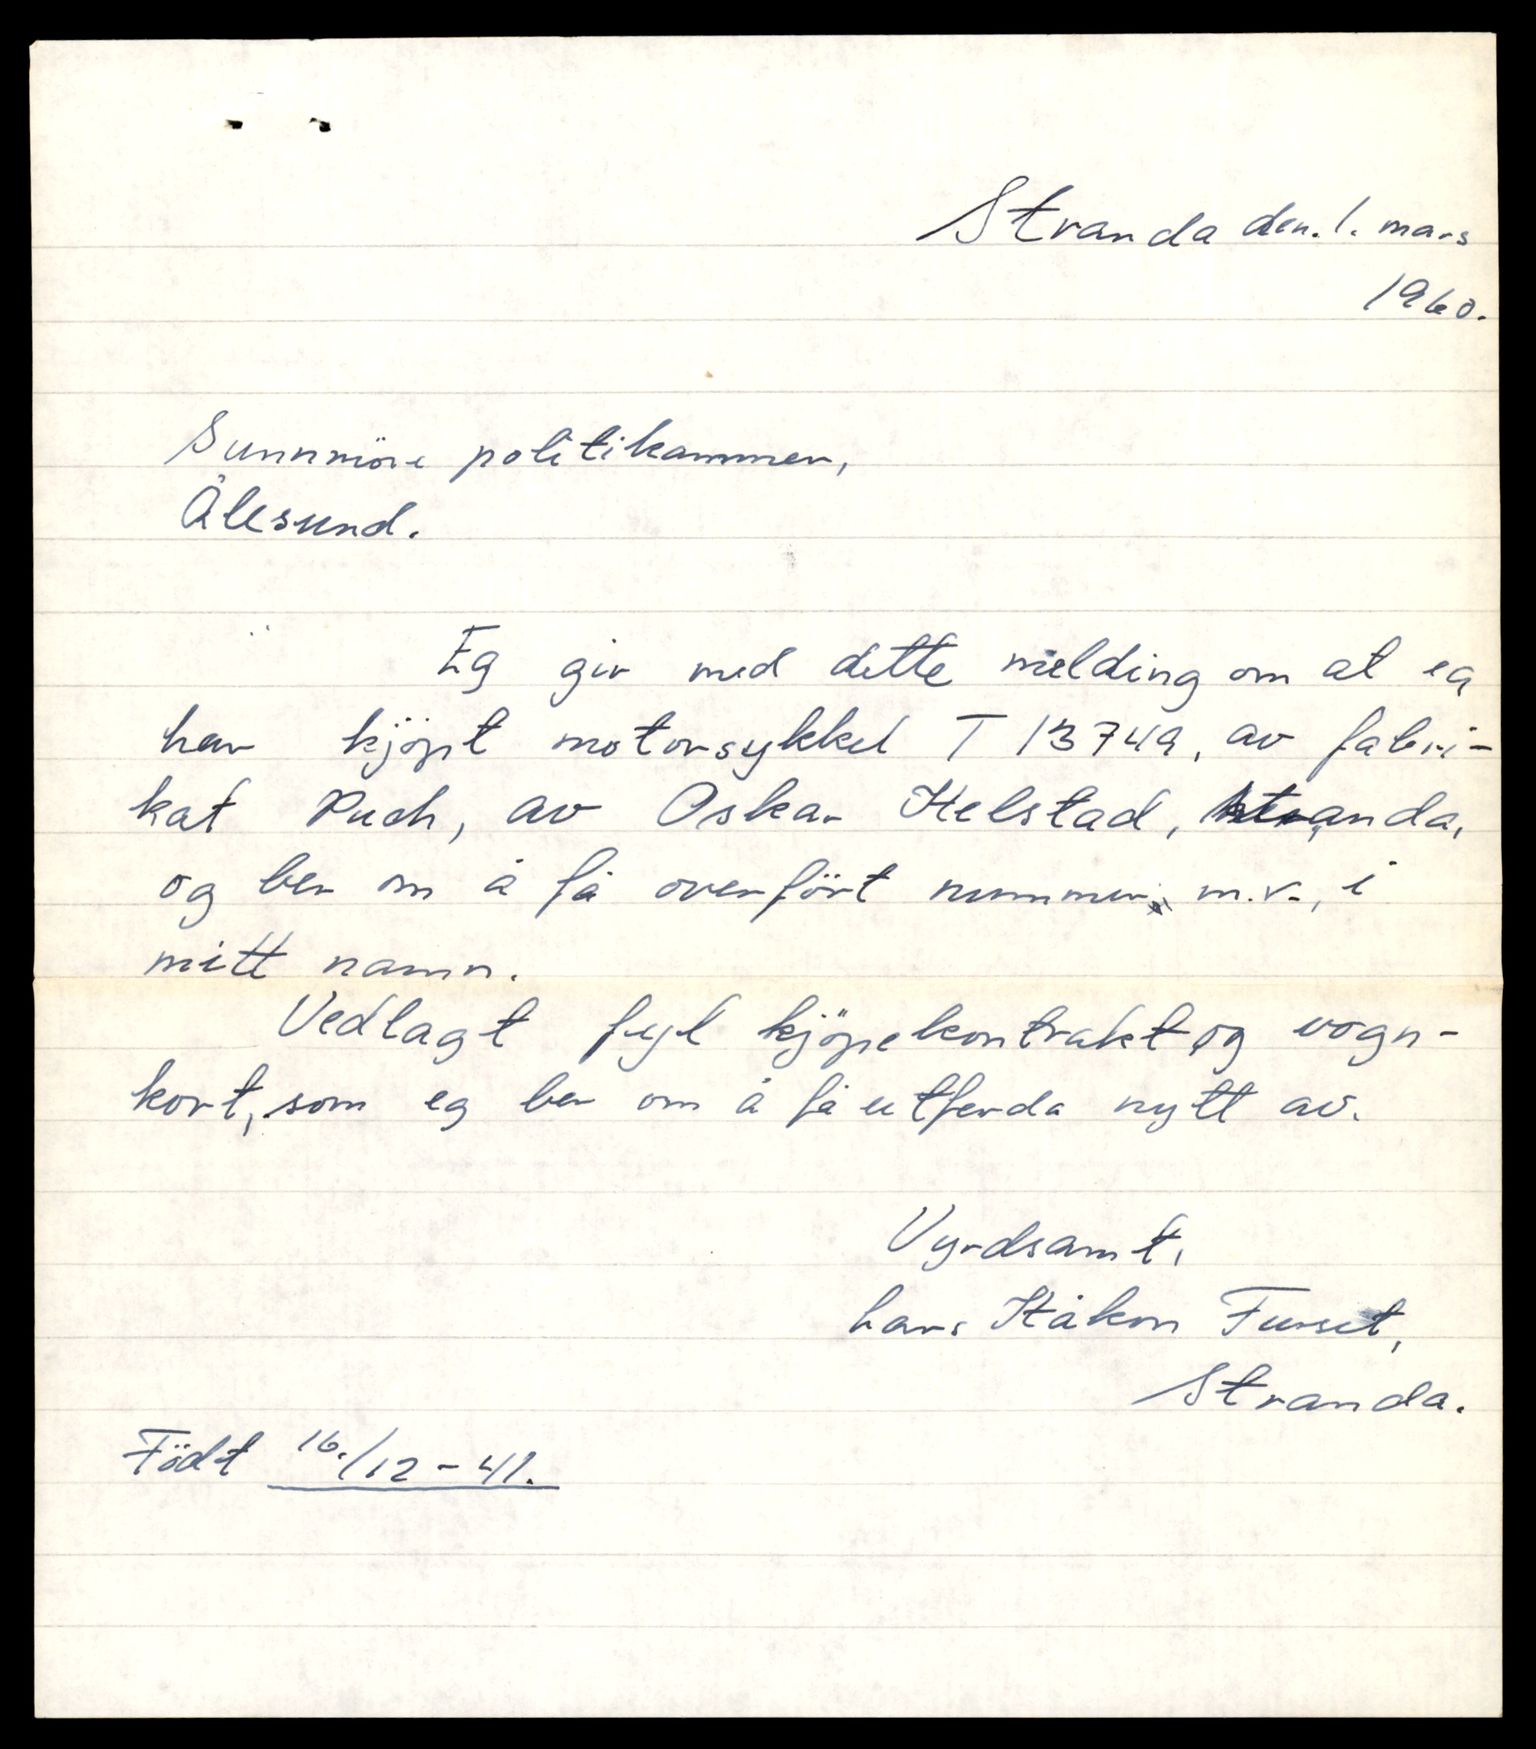 Stranda den. 1. mars
1960.
Sunnmöre politikammer,
Ålesund.
Eg gir med dette melding om at eg
har kjöpt motorsykkel T 13749, av fabri-
kat Puch, av Oskar Helstad, Stranda,
og ber om å få overfört nummer, m.v., i
mitt namn.
Vedlagt fyl kjöpekontrakt og vogn-
kort, som eg ber om å få utferda nytt av.
Vyrdsamt,
Lars Håkon Furset,
Stranda.
Födt 16./12-41.